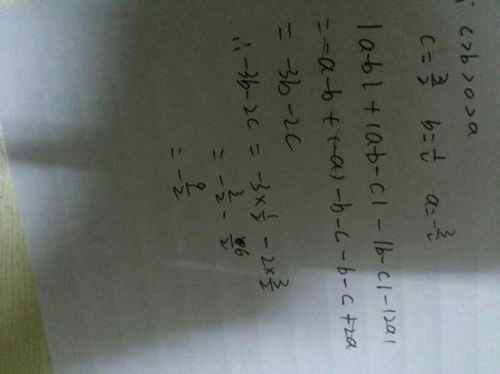 ∵ c>b>0>a
c=3/2 b=1/2 a=-3/2
|ab|+|ab-c|-|b-c|-|2a|
=-a-b+(-a)-b-c-b-c+2a
=-3b-2c
∴-3b-2c=-3×1/2-2×3/2
=-3/2-6/2
=-9/2